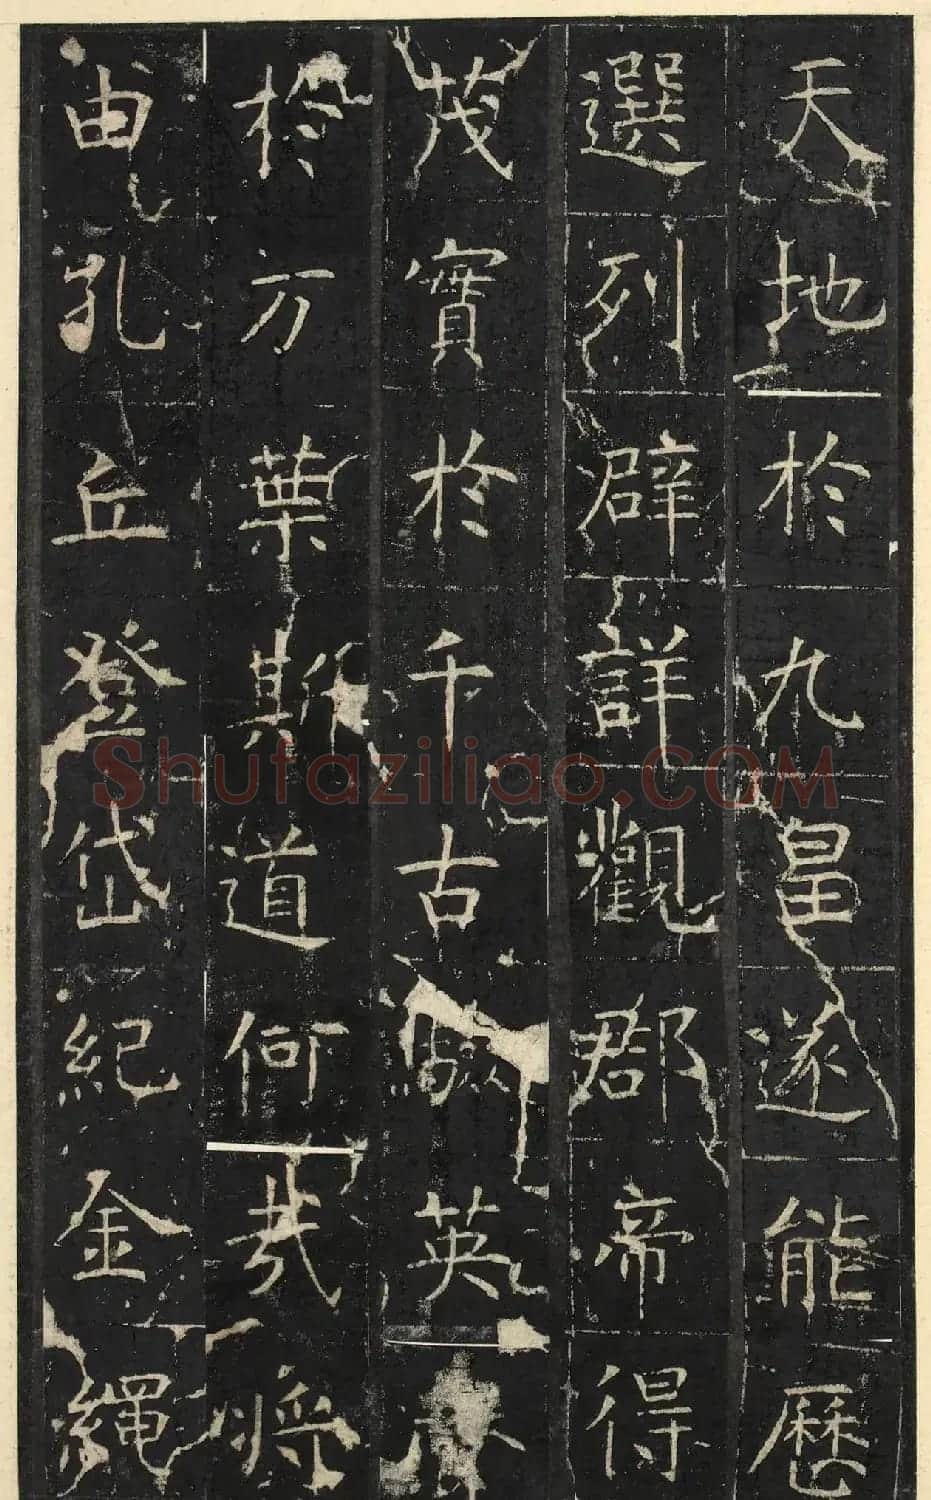 天地於九皇遂能歷
選列辟詳觀郡帝得
茂實於千古英
於万葉斯道何哉將
由孔丘登岱紀金繩
Shufaziliao.COM